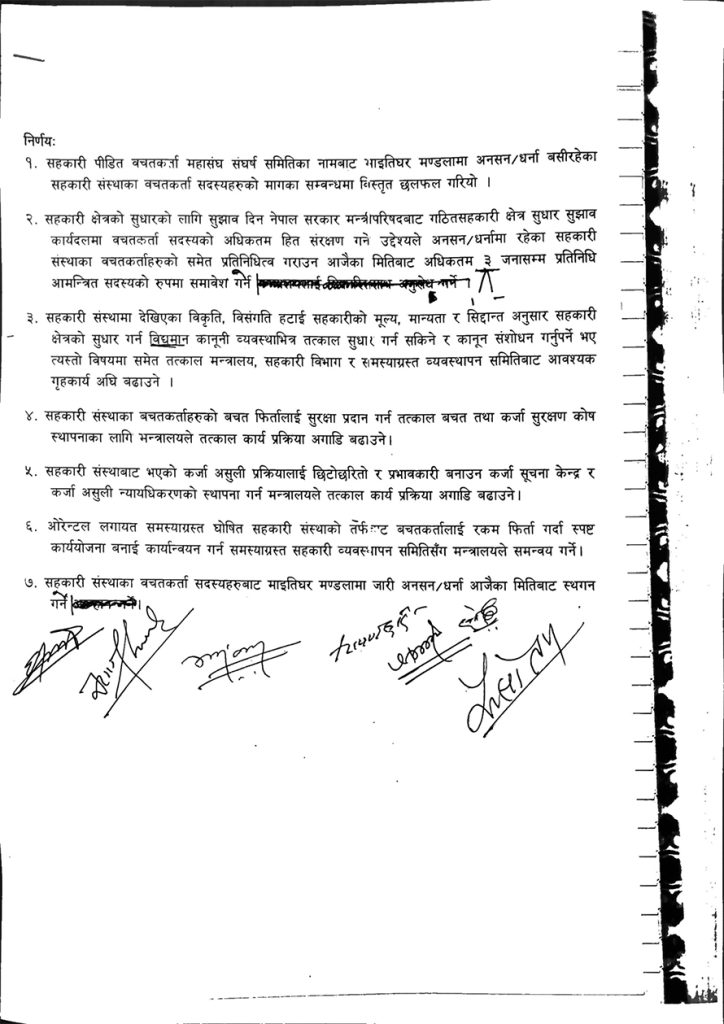 निर्णयः
१. सहकारी पीडित बचतकर्ता महासंघ संघर्ष समितिका नामबाट माइतिघर मण्डलामा अनसन/धर्ना बसीरहेका
सहकारी संस्थाका बचतकर्ता सदस्यहरुको मागका सम्बन्धमा विस्तृत छलफल गरियो ।
२. सहकारी क्षेत्रको सुधारको लागि सुझाव दिन नेपाल सरकार मन्त्रीपरिषदबाट गठितसहकारी क्षेत्र सुधार सुझाव
कार्यदलमा बचतकर्ता सदस्यको अधिकतम हित संरक्षण गने उद्देश्यले अनसन/धर्नामा रहेका सहकारी
संस्थाका बचतकर्ताहरुको समेत प्रतिनिधित्व गराउन आजैका मितिबाट अधिकतम ३ जनासम्म प्रतिनिधि
आमन्त्रित सदस्यको रुपमा समावेश गर्ने
३. सहकारी संस्थामा देखिएका विकृति, विसंगति हटाई सहकारीको मूल्य, मान्यता र सिद्दान्त अनुसार सहकारी
क्षेत्रको सुधार गर्न विद्यमान कानूनी व्यवस्थाभित्र तत्काल सुधार गर्न सकिने र कानून संशोधन गर्नुपर्ने भए
त्यस्तो विषयमा समेत तत्काल मन्त्रालय, सहकारी विभाग र समस्याग्रस्त व्यवस्थापन समितिबाट आवश्यक
गृहकार्य अघि बढाउने ।
४. सहकारी संस्थाका बचतकर्ताहरुको बचत फिर्तालाई सुरक्षा प्रदान गर्न तत्काल बचत तथा कर्जा सुरक्षण कोष
स्थापनाका लागि मन्त्रालयले तत्काल कार्य प्रक्रिया अगाडि बढाउने।
५. सहकारी संस्थाबाट भएको कर्जा असुली प्रक्रियालाई छिटोछरितो र प्रभावकारी बनाउन कर्जा सूचना केन्द्र र
कर्जा असुली न्यायधिकरणको स्थापना गर्न मन्त्रालयले तत्काल कार्य प्रक्रिया अगाडि बढाउने।
६. ओरेन्टल लगायत समस्याग्रस्त घोषित सहकारी संस्थाको तर्फबाट बचतकर्तालाई रकम फिर्ता गर्दा स्पष्ट
कार्ययोजना बनाई कार्यान्वयन गर्न समस्याग्रस्त सहकारी व्यवस्थापन समितिसँग मन्त्रालयले समन्वय गर्ने।
७. सहकारी संस्थाका बचतकर्ता सदस्यहरुबाट माइतिघर मण्डलामा जारी अनसन/धर्ना आजैका मितिबाट स्थगन
गर्ने